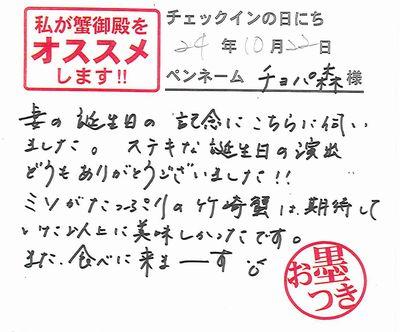 私が蟹御殿を
オススメ
します!!
チェックインの日にち
24年10月22日
ペンネーム チョパ森様
妻の誕生日の記念にこちらに伺い
ました。ステキな誕生日の演出
どうもありがとうございました!!
ミソがたっぷりの竹崎蟹は、期待して
いた以上に美味しかったです。
また、食べに来まーーす
お墨つき